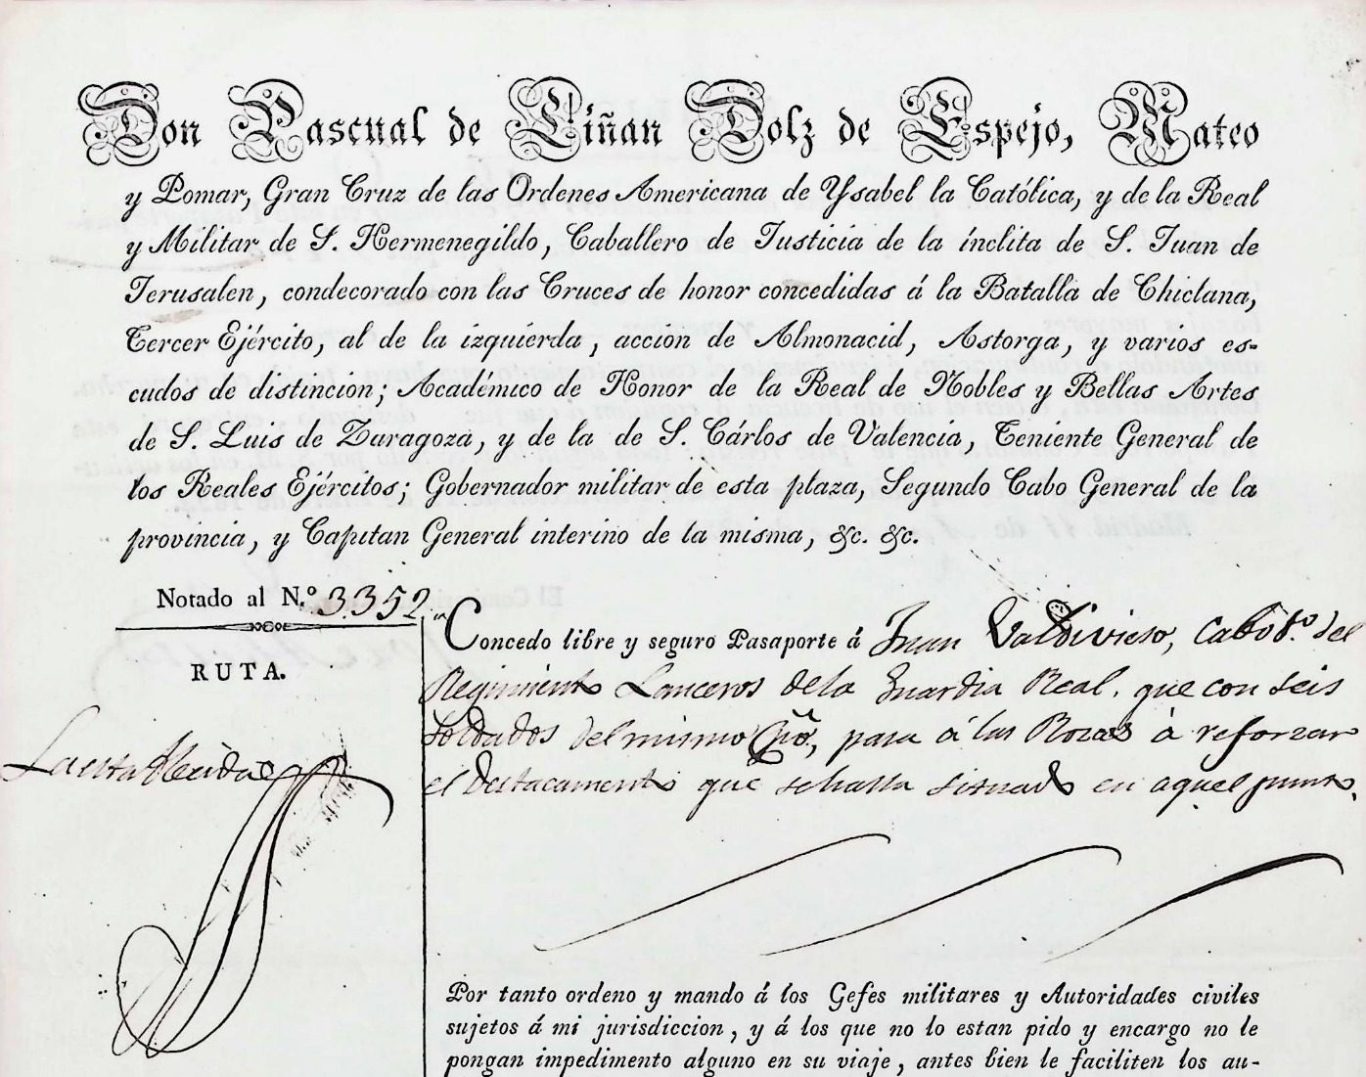 Don Pascual de Liñan Dolz de Espejo, Mateo
y Pomar, Gran Cruz de las Ordenes Americana de Ysabel la Católica, y de la Real
y Militar de S. Hermenegildo, Caballero de Justicia de la ínclita de S. Juan de
Jerusalen, condecorado con las Cruces de honor concedidas á la Batalla de Chiclana,
Tercer Ejército, al de la izquierda, acción de Almonacid, Astorga, y varios es-
cudos de distincion; Académico de Honor de la Real de Nobles y Bellas Artes
de S. Luis de Zaragoza, y de la de S. Cárlos de Valencia, Teniente General de
los Reales Ejércitos; Gobernador militar de esta plaza, Segundo Cabo General de la
provincia, y Capitan General interino de la misma, &c. &c.
Notado al N.º 3352
RUTA.
La establecida
Concedo libre y seguro Pasaporte á Juan Valdivieso, Cabo 1.º del
Regimiento Lanceros de la Guardia Real, que con seis
soldados del mismo pasa á las Rozas á reforzar
el Destacamento que se halla situado en aquel punto.
Por tanto ordeno y mando á los Gefes militares y Autoridades civiles
sujetos á mi jurisdiccion, y á los que no lo estan pido y encargo no le
pongan impedimento alguno en su viaje, antes bien le faciliten los au-